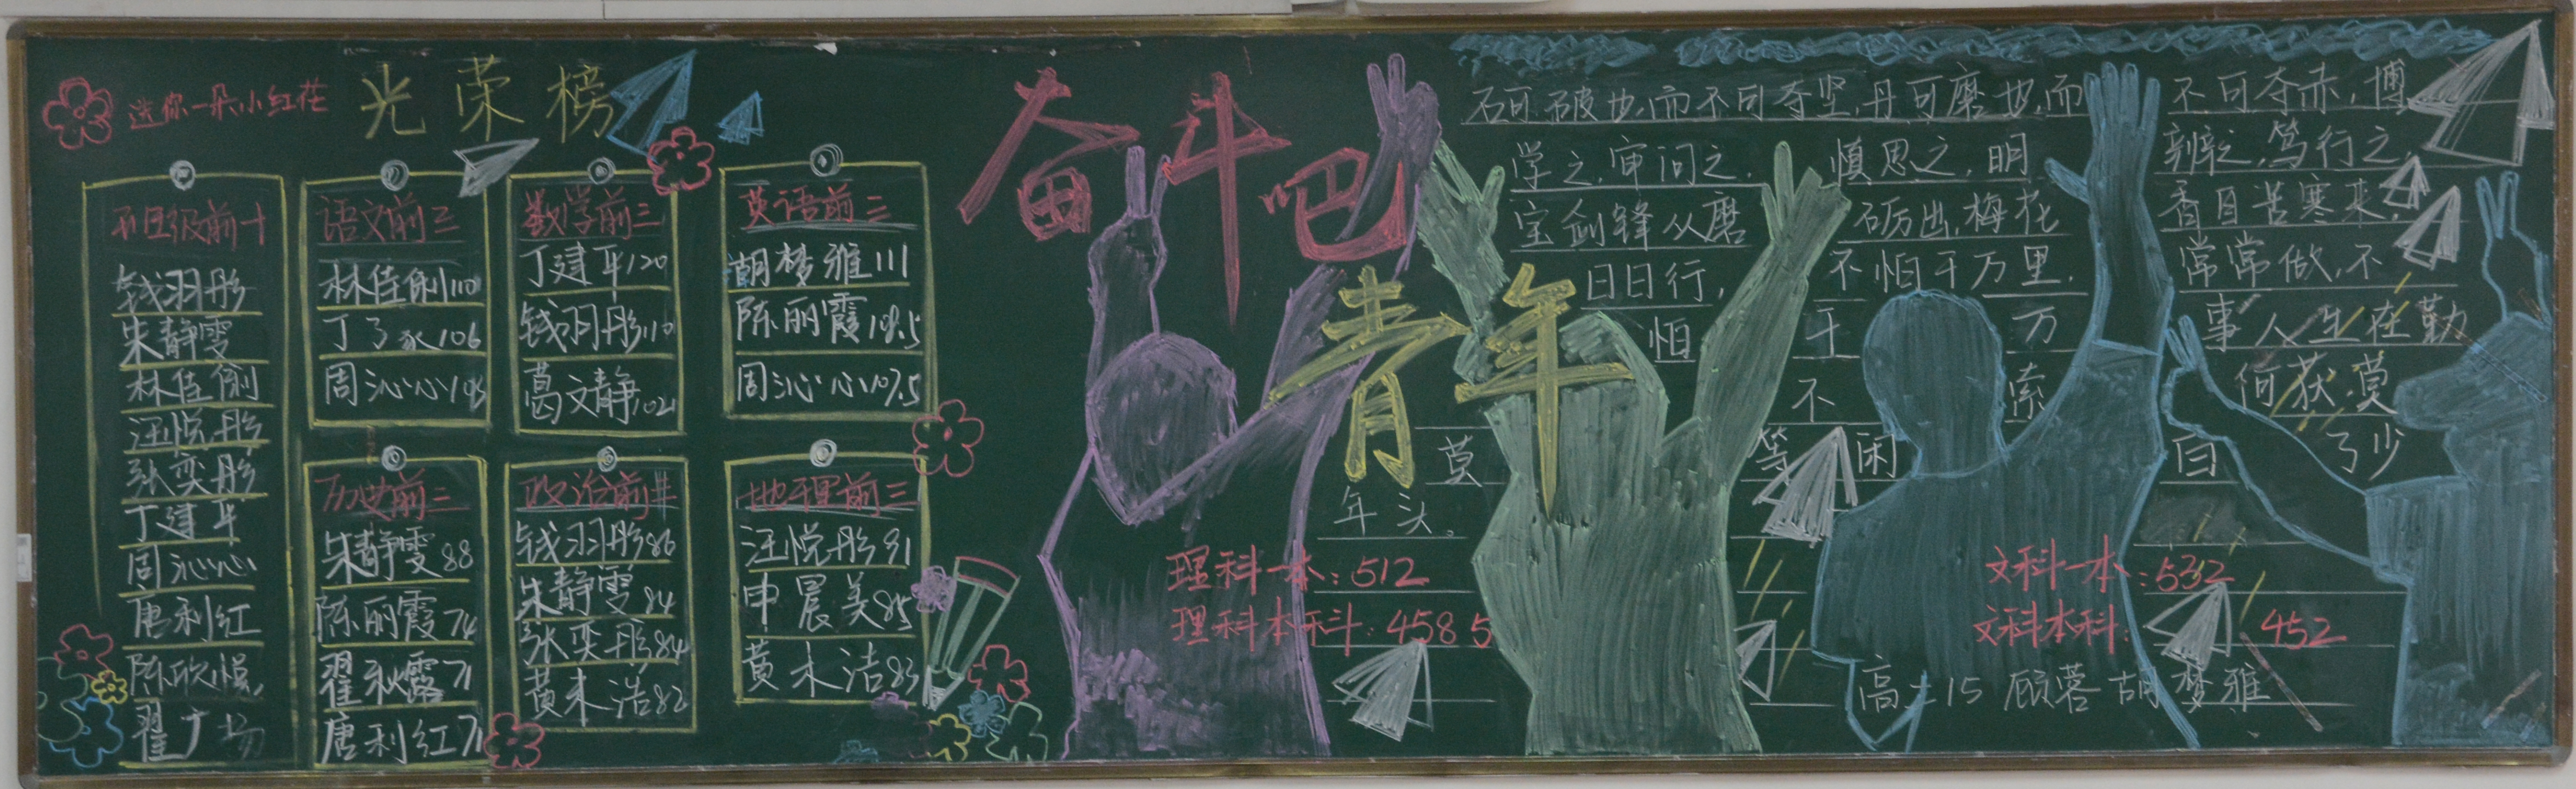 送你一朵小红花
光荣榜
班级前十
钱羽彤
朱静雯
林佳俐
汪悦彤
张奕彤
丁建平
周沁心
唐利红
陈欣悦
翟广扬
语文前三
林佳俐110
丁了 106
周沁心105
数学前三
丁建平120
钱羽彤110
葛文静102
英语前三
胡梦雅111
陈丽霞108.5
周沁心107.5
历史前三
朱静雯88
陈丽霞74
翟秋露71
唐利红71
政治前三
钱羽彤86
朱静雯84
张奕彤84
黄未浩82
地理前三
汪悦彤91
申晨美85
黄木洁83
奋斗吧
青年
石可破也,而不可夺坚,丹可磨也,而不可夺赤,博
学之,审问之,慎思之,明辨之,笃行之,
宝剑锋从磨砺出,梅花香自苦寒来,
日日行,不怕千万里,常常做,不
怕千万事人生在勤
不索何获,莫
莫等闲白了少
年头。
理科一本:512
文科一本:532
理科本科:458 5
文科本科:452
高二15 顾蓉 胡梦雅